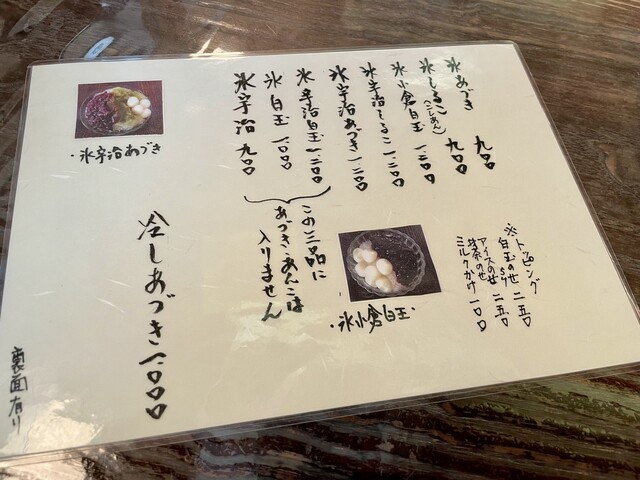 氷あづき 九〇〇
氷しるこ(こしあん) 九〇〇
氷小倉白玉 一、二〇〇
氷宇治しるこ 一、二〇〇
氷宇治あづき 一、二〇〇
氷宇治白玉 一、二〇〇
氷白玉 一、〇〇〇
氷宇治 九〇〇
この三品に
あづき・あんこは
入りません
※トッピング
白玉のせ 二五〇
アイスのせ 二五〇
ミルクかけ 一〇〇
・氷宇治あづき
・氷小倉白玉・
冷しあづき 一、〇〇〇
裏面有り